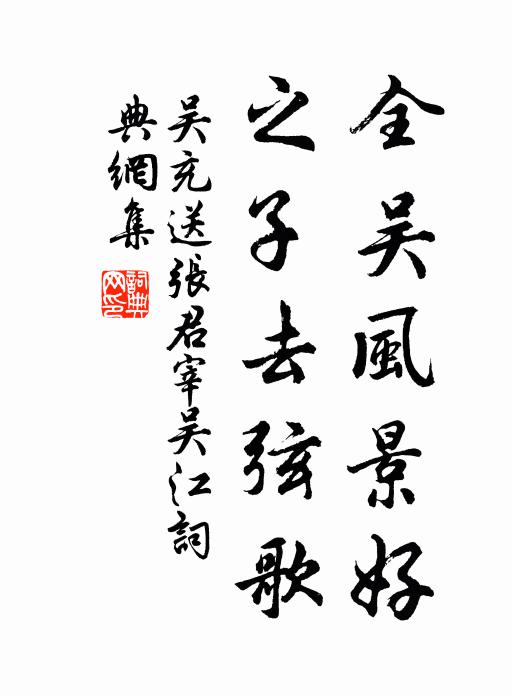 全吴風景好
之子去弦歌
吴充送張君宰吴江詞
典網集
詞典
网印